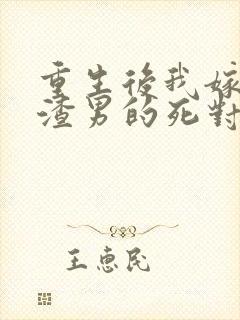 重生後我嫁
渣男的死對
王惠民